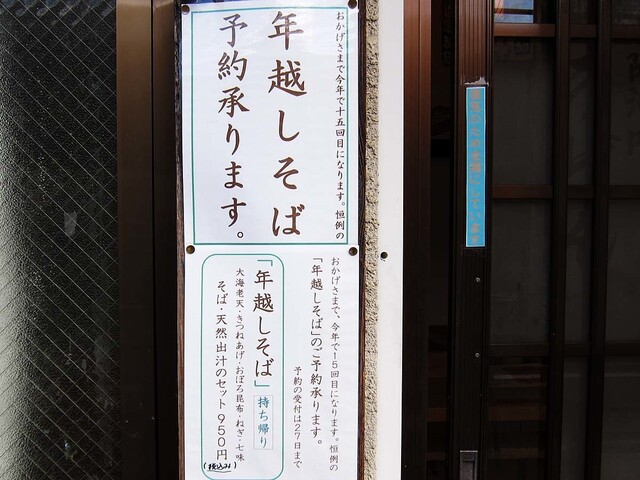 おかげさまで今年で十五回目になります。恒例の
年越しそば
予約承ります。
おかげさまで、今年で15回目になります。恒例の
「年越しそば」のご予約承ります。
予約の受付は27日まで
「年越しそば」持ち帰り
大海老天・きつねあげ・おぼろ昆布・ねぎ・七味
そば・天然出汁のセット950円
(税込み)